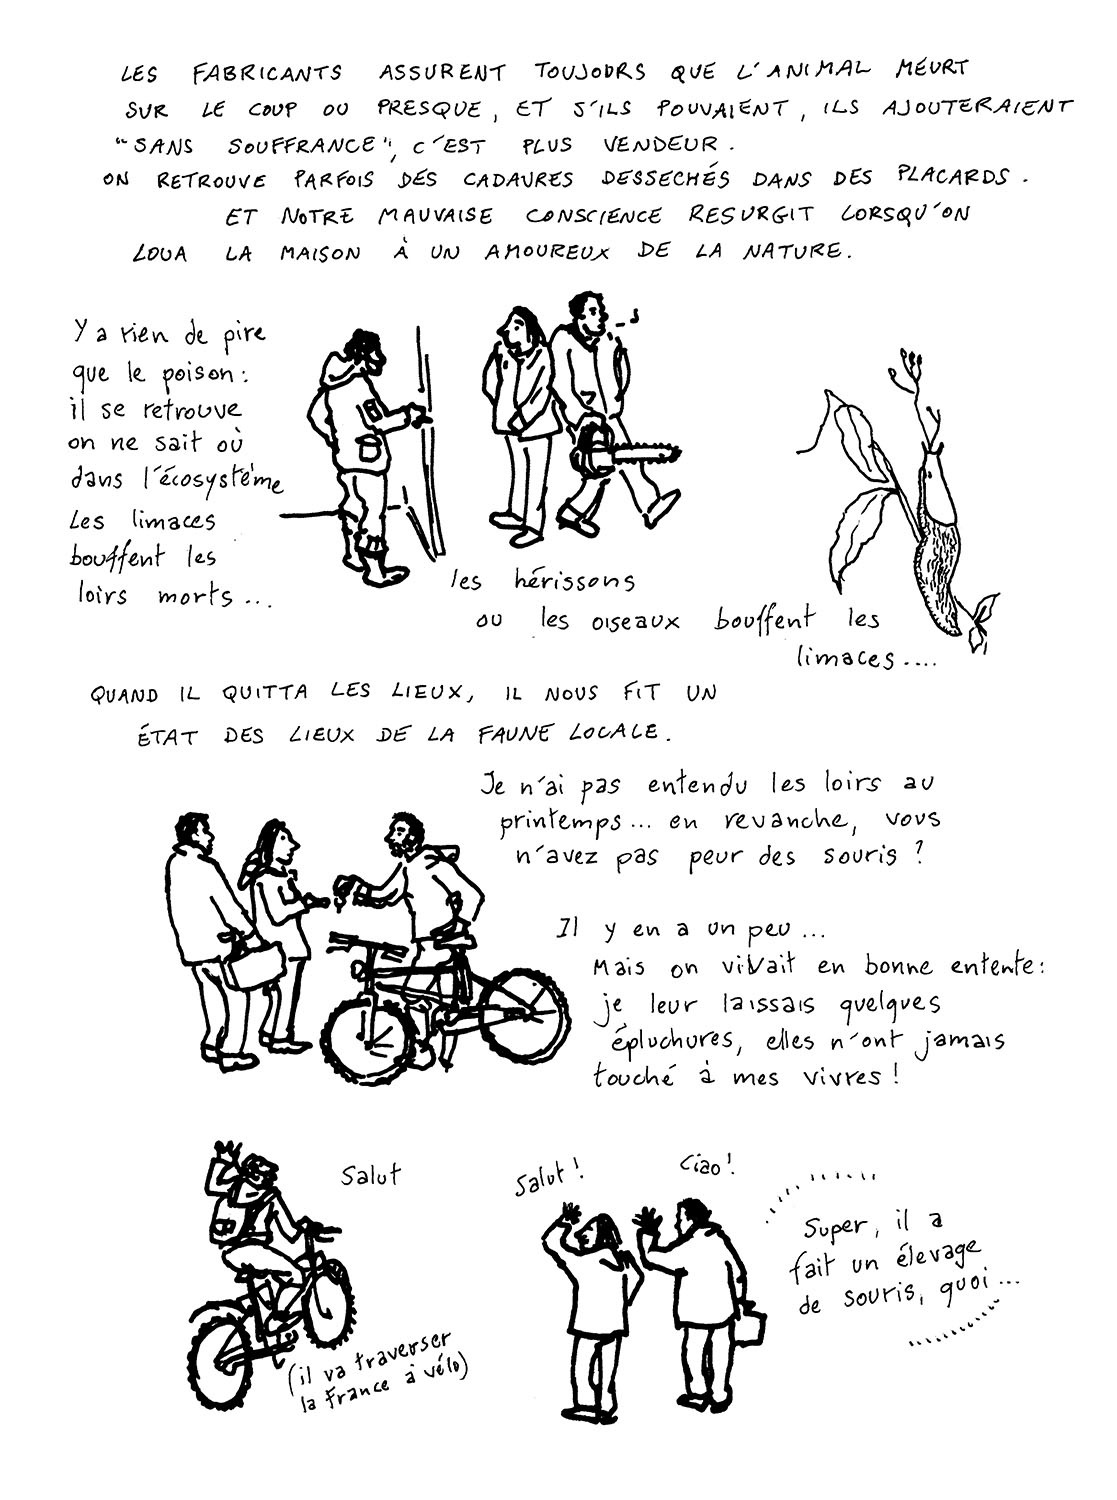 LES FABRICANTS ASSURENT TOUJOURS QUE L'ANIMAL MEURT
SUR LE COUP OU PRESQUE, ET S'ILS POUVAIENT, ILS AJOUTERAIENT
"SANS SOUFFRANCE", C'EST PLUS VENDEUR.
ON RETROUVE PARFOIS DES CADAVRES DESSECHÉS DANS DES PLACARDS.
ET NOTRE MAUVAISE CONSCIENCE RESURGIT LORSQU'ON
LOUA LA MAISON À UN AMOUREUX DE LA NATURE.
Y a rien de pire
que le poison:
il se retrouve
on ne sait où
dans l'écosystème
Les limaces
bouffent les
loirs morts...
les hérissons
ou les oiseaux bouffent les
limaces....
QUAND IL QUITTA LES LIEUX, IL NOUS FIT UN
ÉTAT DES LIEUX DE LA FAUNE LOCALE.
Je n'ai pas entendu les loirs au
printemps... en revanche, vous
n'avez pas peur des souris ?
Il y en a un peu...
Mais on vivait en bonne entente:
je leur laissais quelques
épluchures, elles n'ont jamais
touché à mes vivres !
Salut
Salut !
Ciao !
Super, il a
fait un élevage
de souris, quoi...
(il va traverser
la France à vélo)